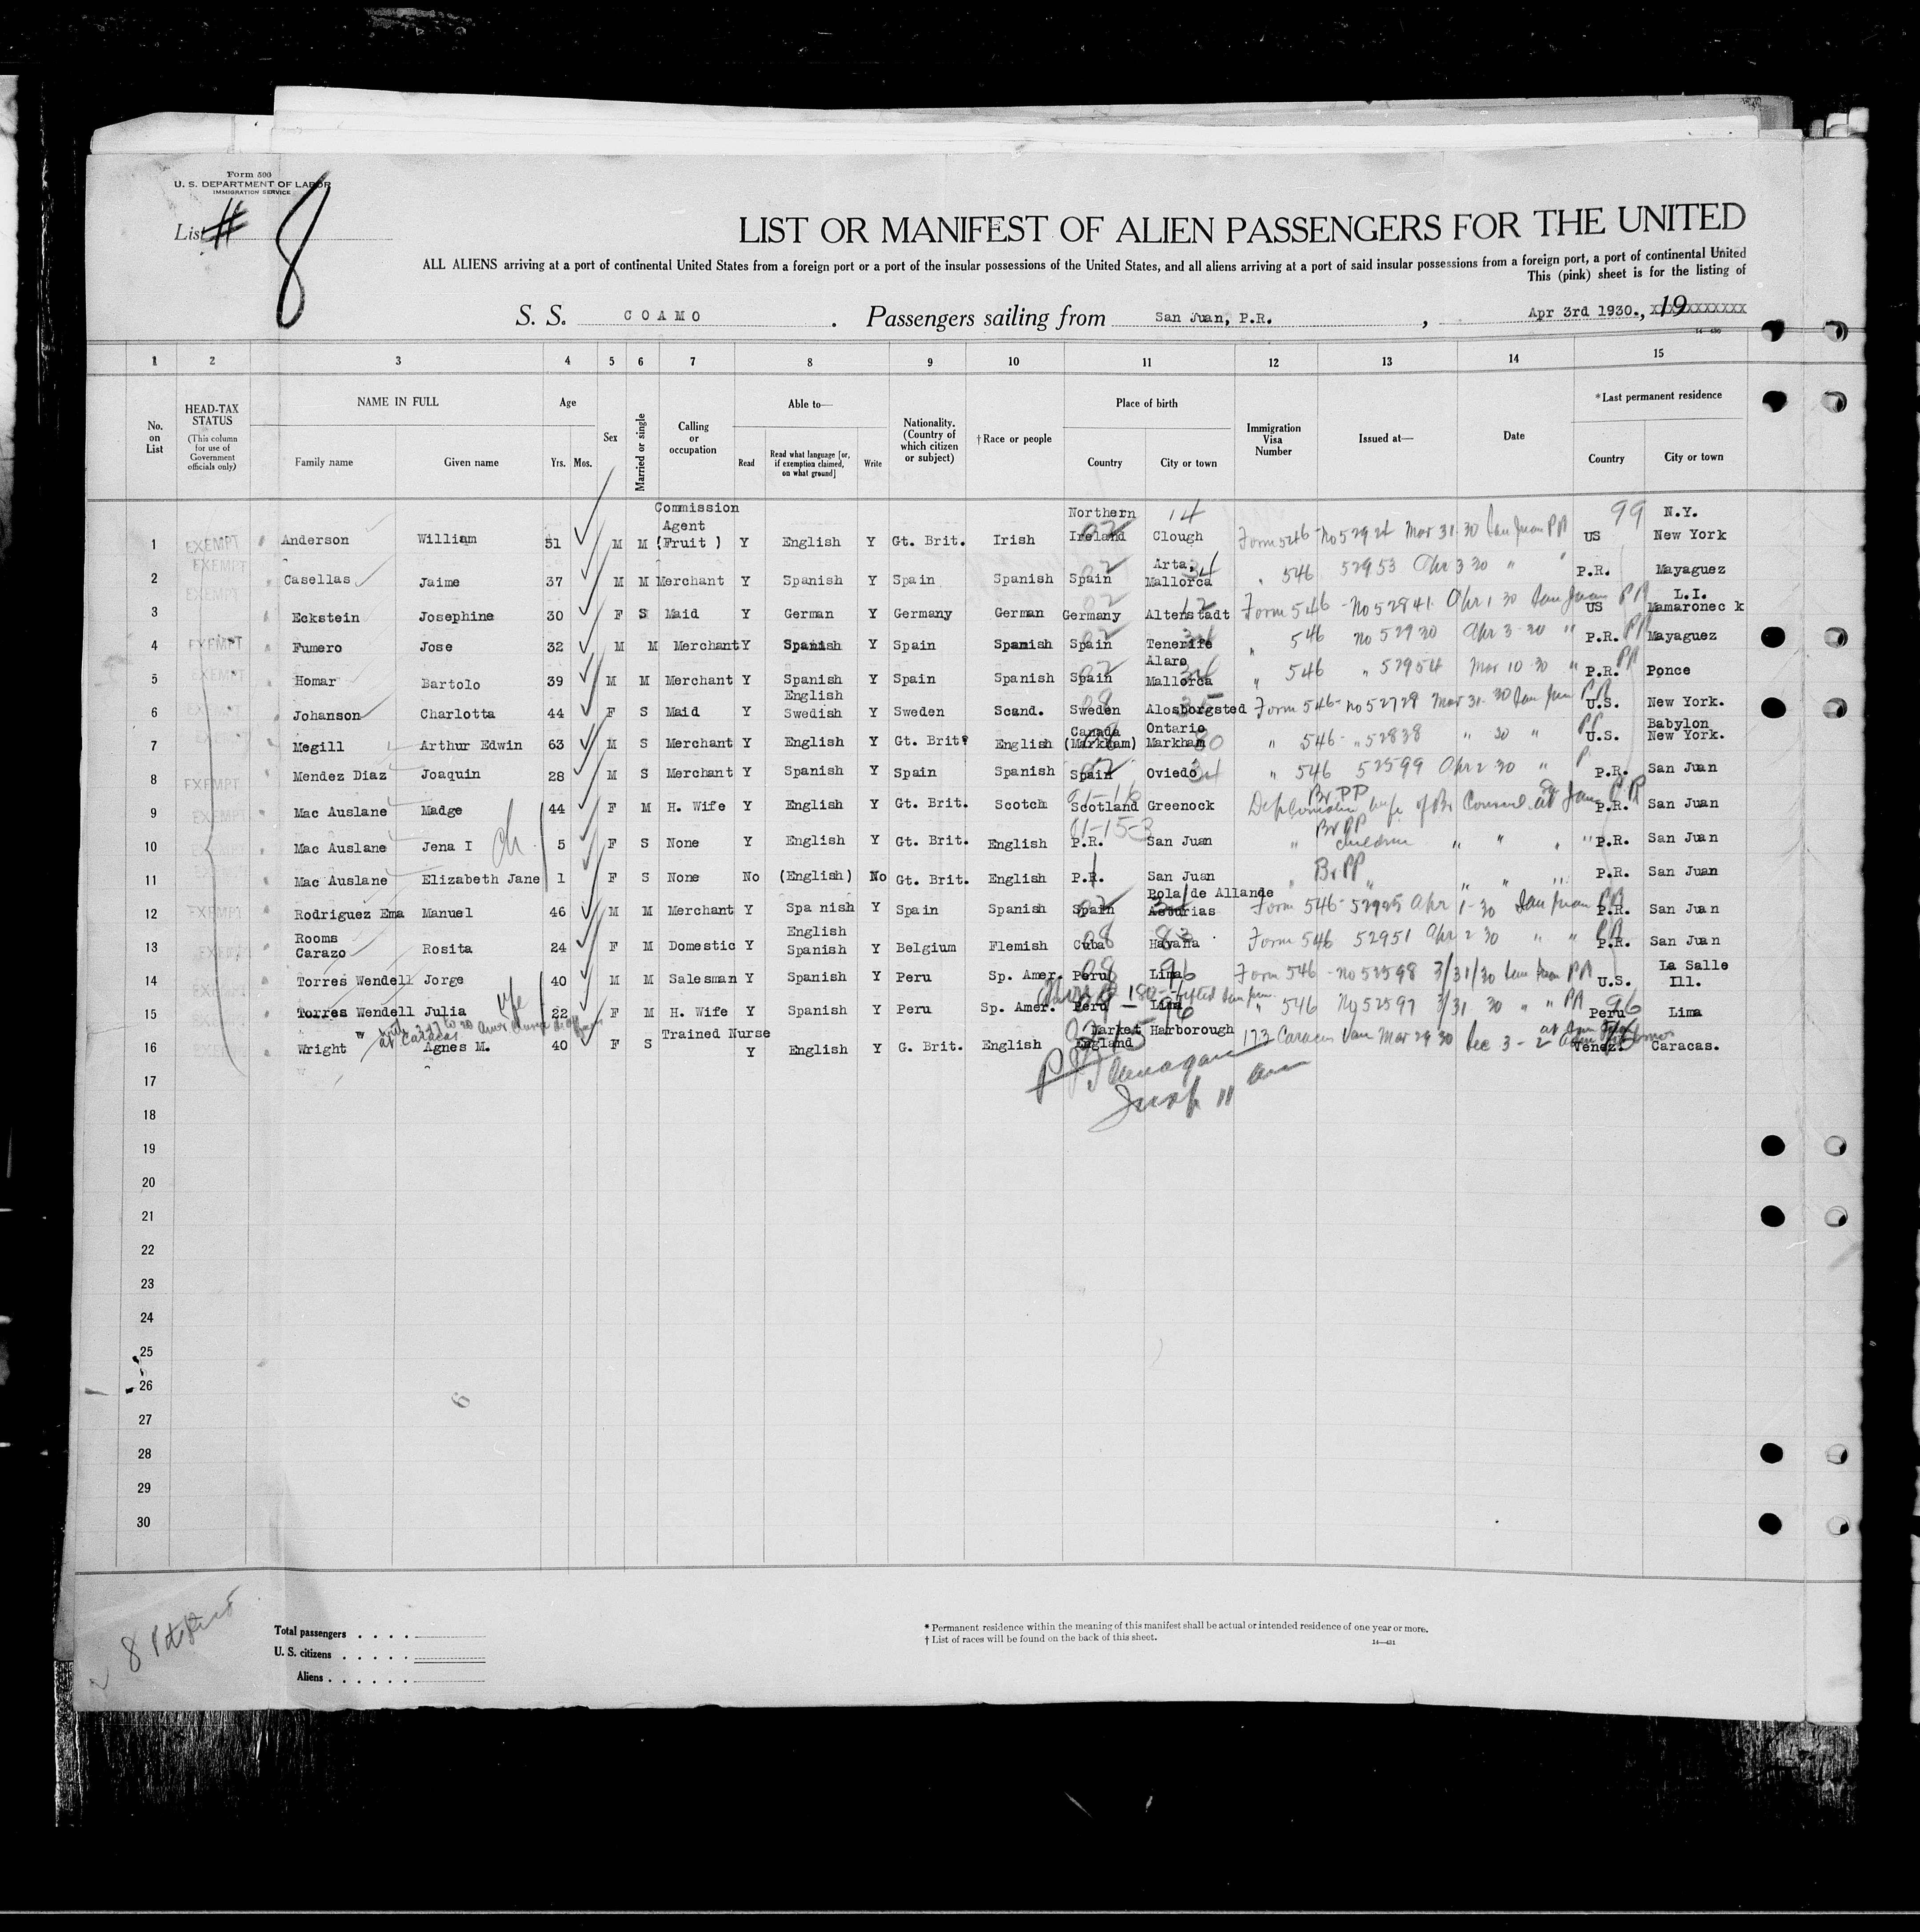 Form 500
U. S. DEPARTMENT OF LABOR
IMMIGRATION SERVICE
List # 8
LIST OR MANIFEST OF ALIEN PASSENGERS FOR THE UNITED
ALL ALIENS arriving at a port of continental United States from a foreign port or a port of the insular possessions of the United States, and all aliens arriving at a port of said insular possessions from a foreign port, a port of continental United
This (pink) sheet is for the listing of
S. S. COAMO. Passengers sailing from San Juan, P.R., Apr 3rd 1930., 19 XXXXXXXXXXX
14-430
1 2 3 4 5 6 7 8 9 10 11 12 13 14 15
No. on List
HEAD-TAX STATUS (This column for use of Government officials only)
NAME IN FULL
Family name Given name
Age
Yrs. Mos.
Sex
Married or single
Calling or occupation
Able to—
Read Read what language [or, if exemption claimed, on what ground] Write
Nationality. (Country of which citizen or subject)
† Race or people
Place of birth
Country City or town
Immigration Visa Number
Issued at—
Date
* Last permanent residence
Country City or town
Commission Agent Northern 14 99 N.Y.
1 EXEMPT Anderson William 51 M M (Fruit ) Y English Y Gt. Brit. Irish Ireland Clough Form 546 - No 52924 Mar 31 30 San Juan PR US New York
EXEMPT Arta,
2 Casellas Jaime 37 M M Merchant Y Spanish Y Spain Spanish Spain Mallorca " 546 52953 Apr 3 30 " " P.R. Mayaguez
EXEMPT L.I.
3 Eckstein Josephine 30 F S Maid Y German Y Germany German Germany Altenstadt Form 546 - No 52841 Apr 1 30 San Juan PR US Mamaronec k
4 EXEMPT Fumero Jose 32 M M Merchant Y Spanish Y Spain Spanish Spain Tenerife " 546 No 52930 Apr 3 30 " PR P.R. Mayaguez
Alaro
5 EXEMPT Homar Bartolo 39 M M Merchant Y Spanish Y Spain Spanish Spain Mallorca " 546 " 52954 Mar 10 30 " PR P.R. Ponce
English
6 EXEMPT Johanson Charlotta 44 F S Maid Y Swedish Y Sweden Scand. Sweden Alosborgsted Form 546 - No 52728 Mar 31 30 San Juan PR U.S. New York.
Canada Ontario Babylon
7 Megill Arthur Edwin 63 M S Merchant Y English Y Gt. Brit. English (Markham) Markham " 546 - " 52838 " 30 " U.S. New York.
8 EXEMPT Mendez Diaz Joaquin 28 M S Merchant Y Spanish Y Spain Spanish Spain Oviedo " 546 52599 Apr 2 30 " P.R. San Juan
Br. PP
9 EXEMPT Mac Auslane Madge 44 F M H. Wife Y English Y Gt. Brit. Scotch Scotland Greenock wife of Br Consul at San Juan PR P.R. San Juan
Br PP
10 EXEMPT Mac Auslane Jena I ch 5 F S None Y English Y Gt. Brit. English P.R. San Juan " children " " " " P.R. San Juan
Br PP
11 EXEMPT Mac Auslane Elizabeth Jane 1 F S None No (English) No Gt. Brit. English P.R. San Juan " " " " P.R. San Juan
Pola de Allande
12 EXEMPT Rodriguez Ema Manuel 46 M M Merchant Y Spa nish Y Spain Spanish Spain Asturias Form 546 - 52925 Apr 1 - 30 San Juan PR P.R. San Juan
Rooms English
13 EXEMPT Carazo Rosita 24 F M Domestic Y Spanish Y Belgium Flemish Cuba Havana Form 546 52951 Apr 2 30 " " PR P.R. San Juan
La Salle
14 EXEMPT Torres Wendell Jorge 40 M M Salesman Y Spanish Y Peru Sp. Amer. Peru Lima 96 Form 546 - No 52598 3/31/30 San Juan PR U.S. Ill.
15 EXEMPT Torres Wendell Julia wfe 22 F M H. Wife Y Spanish Y Peru Sp. Amer. Peru Lima 96 " 546 No 52597 3/31 30 " " PR 96 Peru Lima
Trained Nurse Market Harborough
16 EXEMPT Wright Agnes M. 40 F S Y English Y G. Brit. English England 173 Caracas Ven Mar 29 30 Sec 3 - 2 Venez. Caracas.
17
Insp
18
19
20
21
22
23
24
25
26
27
28
29
30
6
8
Total passengers . . . .
U. S. citizens . . . . .
Aliens . . . . . .
* Permanent residence within the meaning of this manifest shall be actual or intended residence of one year or more.
† List of races will be found on the back of this sheet.
14-431